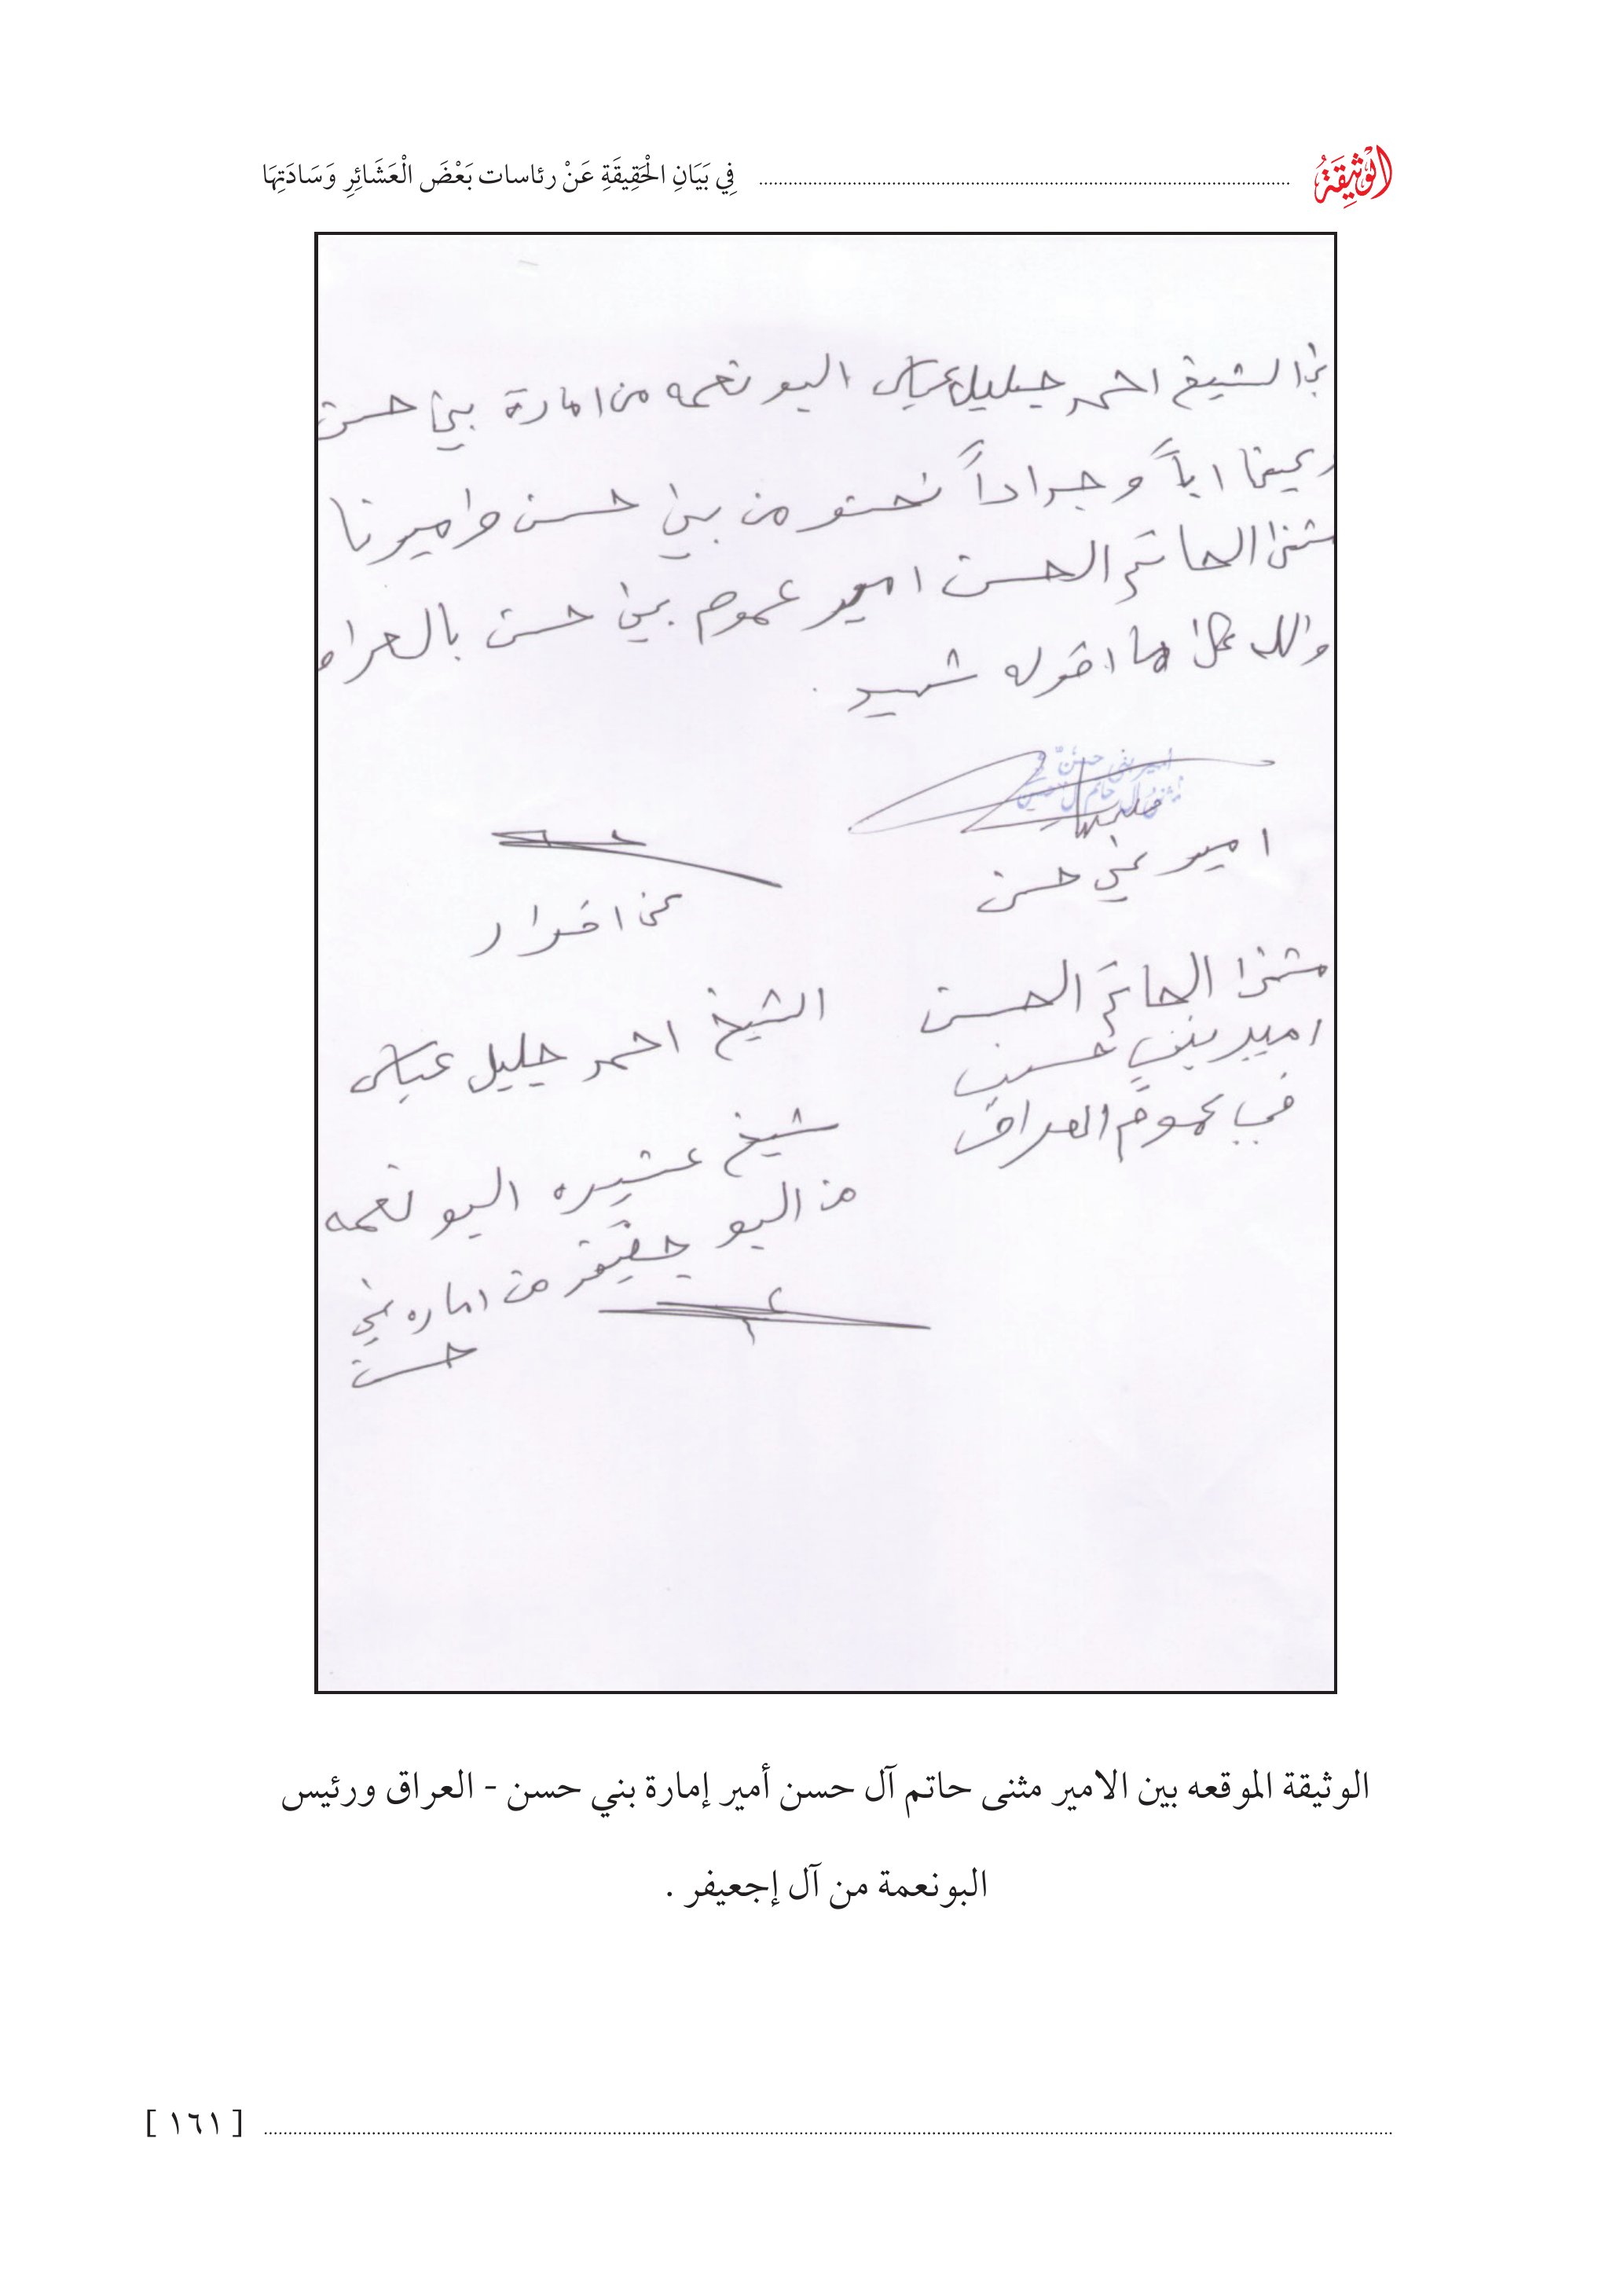 الْوَثِيقَةُ فِي بَيَانِ الْحَقِيقَةِ عَنْ رئاسات بَعْضَ الْعَشَائِرِ وَسَادَتِهَا
الشيخ احمد جليل عباس البو نعمه من امارة بني حسن
اباً وجداداً نحنو من بني حسن واميرنا
مثنى الحاتم الحسن امير عموم بني حسن بالعراق
والله على ما اقوله شهيد .
أمير بني حسن
امير بني حسن
مثنى الحاتم الحسن
امير بني حسن
في عموم العراق
عن اقرار
الشيخ احمد جليل عباس
شيخ عشيره البو نعمه
من البو جعيفر من اماره بني
حسن
الوثيقة الموقعه بين الامير مثنى حاتم آل حسن أمير إمارة بني حسن - العراق ورئيس
البونعمة من آل إجعيفر .
[ ١٦١ ]